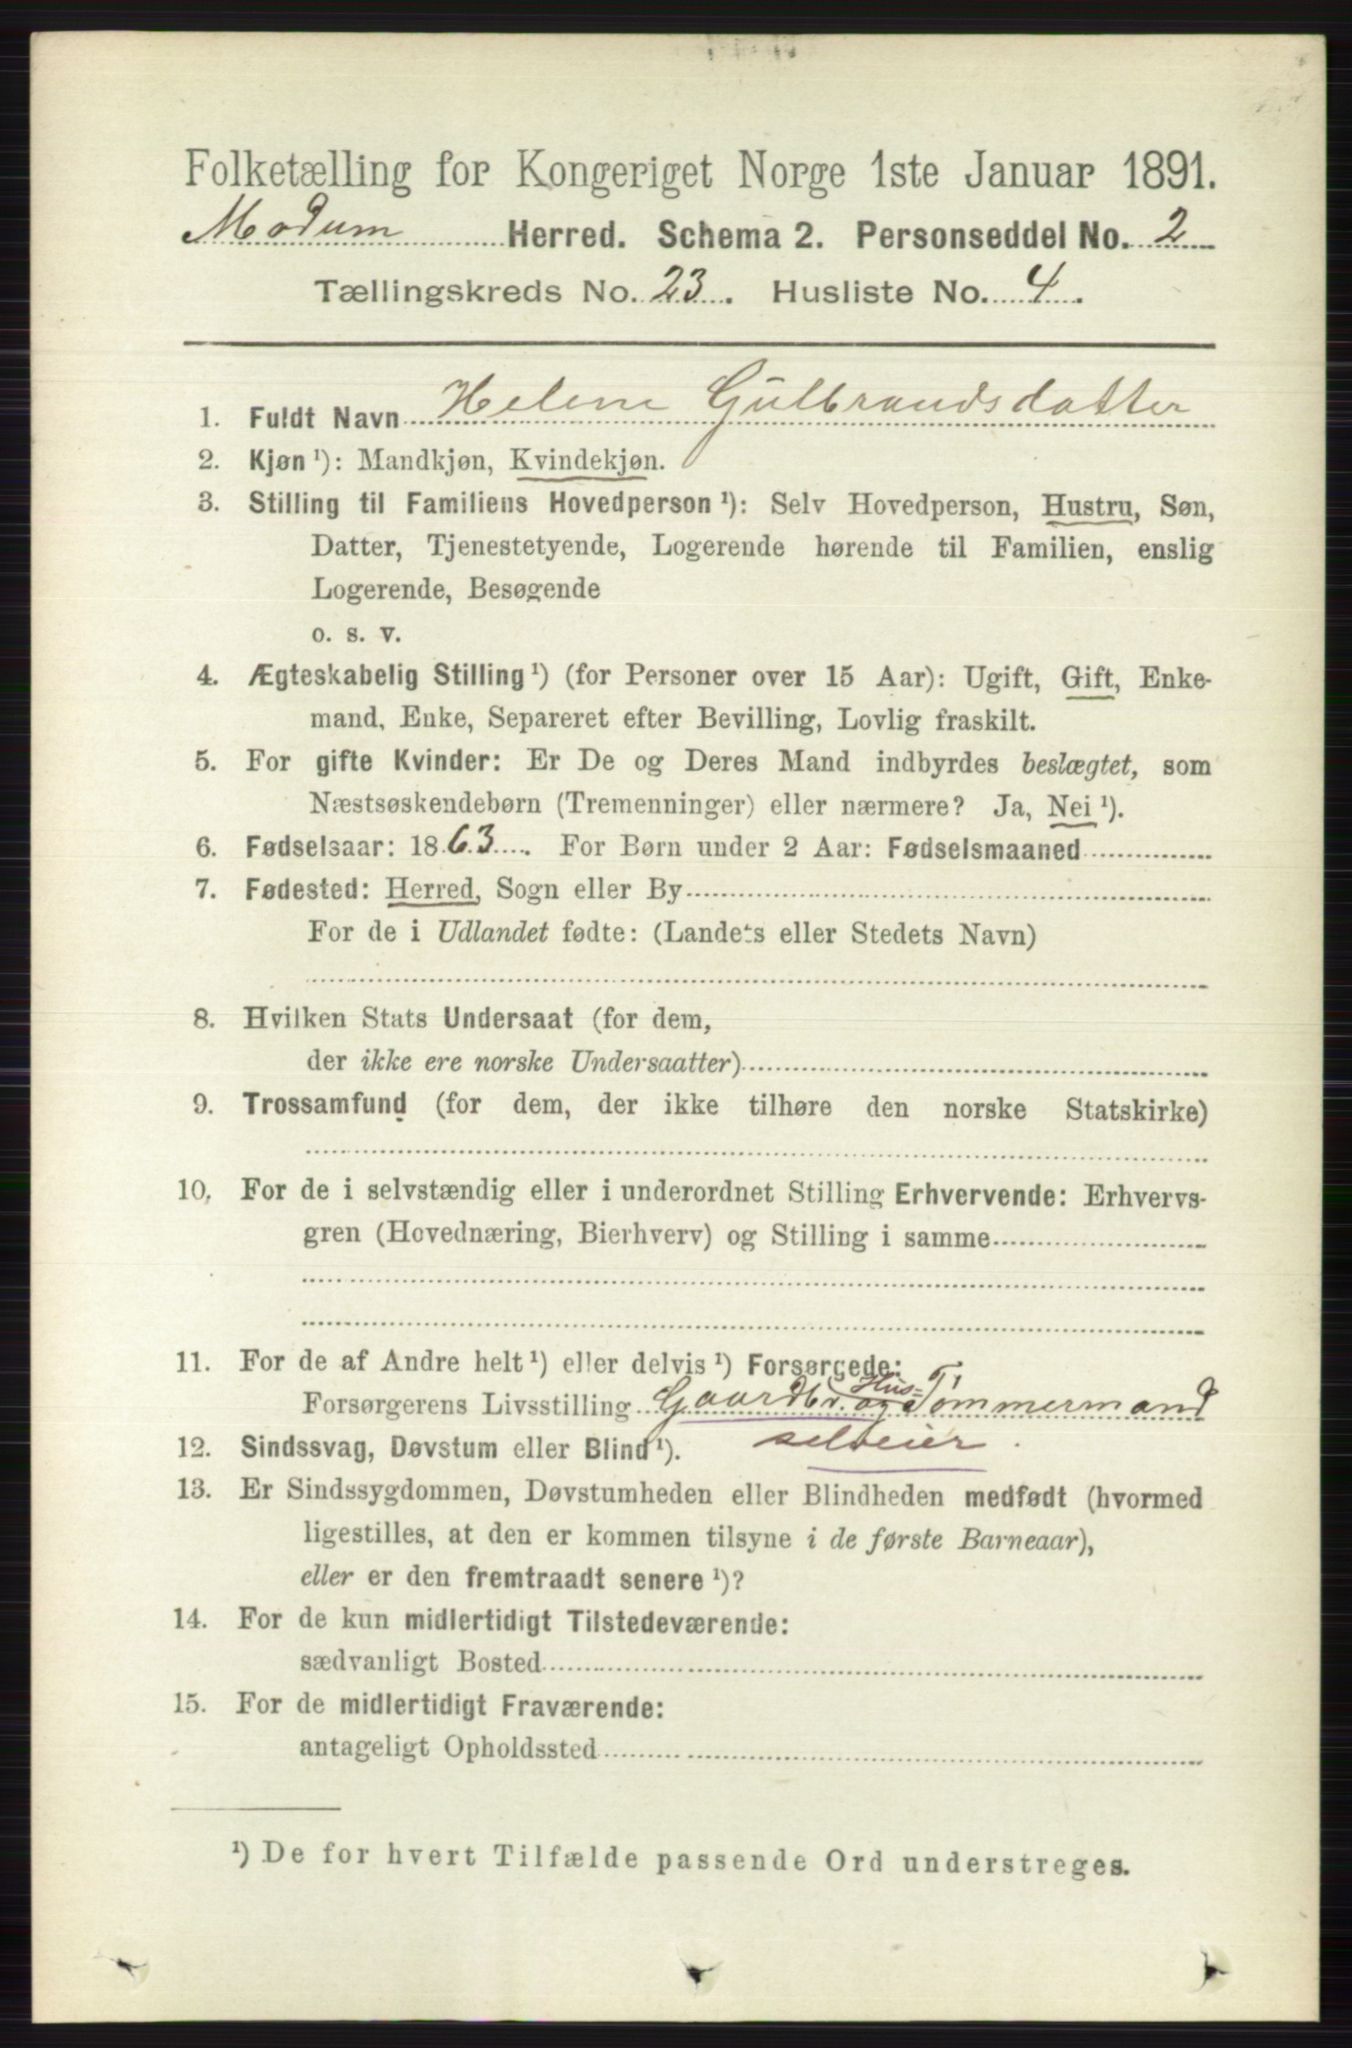 Folketælling for Kongeriget Norge 1ste Januar 1891.
Modum Herred. Schema 2. Personseddel No. 2
Tællingskreds No. 23. Husliste No. 4.
1. Fuldt Navn Helene Gulbrandsdatter
2. Kjøn ¹): Mandkjøn, Kvindekjøn.
3. Stilling til Familiens Hovedperson ¹): Selv Hovedperson, Hustru, Søn,
Datter, Tjenestetyende, Logerende hørende til Familien, enslig
Logerende, Besøgende
o. s. v.
4. Ægteskabelig Stilling ¹) (for Personer over 15 Aar): Ugift, Gift, Enke-
mand, Enke, Separeret efter Bevilling, Lovlig fraskilt.
5. For gifte Kvinder: Er De og Deres Mand indbyrdes beslægtet, som
Næstsøskendebørn (Tremenninger) eller nærmere? Ja, Nei ¹).
6. Fødselsaar: 1863. For Børn under 2 Aar: Fødselsmaaned
7. Fødested: Herred, Sogn eller By
For de i Udlandet fødte: (Landets eller Stedets Navn)
8. Hvilken Stats Undersaat (for dem,
der ikke ere norske Undersaatter)
9. Trossamfund (for dem, der ikke tilhøre den norske Statskirke)
10. For de i selvstændig eller i underordnet Stilling Erhvervende: Erhvervs-
gren (Hovednæring, Bierhverv) og Stilling i samme
11. For de af Andre helt ¹) eller delvis ¹) Forsørgede:
Forsørgerens Livsstilling Gaardbr. og Hus=Tømmermand
selveier.
12. Sindssvag, Døvstum eller Blind ¹).
13. Er Sindssygdommen, Døvstumheden eller Blindheden medfødt (hvormed
ligestilles, at den er kommen tilsyne i de første Barneaar),
eller er den fremtraadt senere ¹)?
14. For de kun midlertidigt Tilstedeværende:
sædvanligt Bosted
15. For de midlertidigt Fraværende:
antageligt Opholdssted
¹) De for hvert Tilfælde passende Ord understreges.